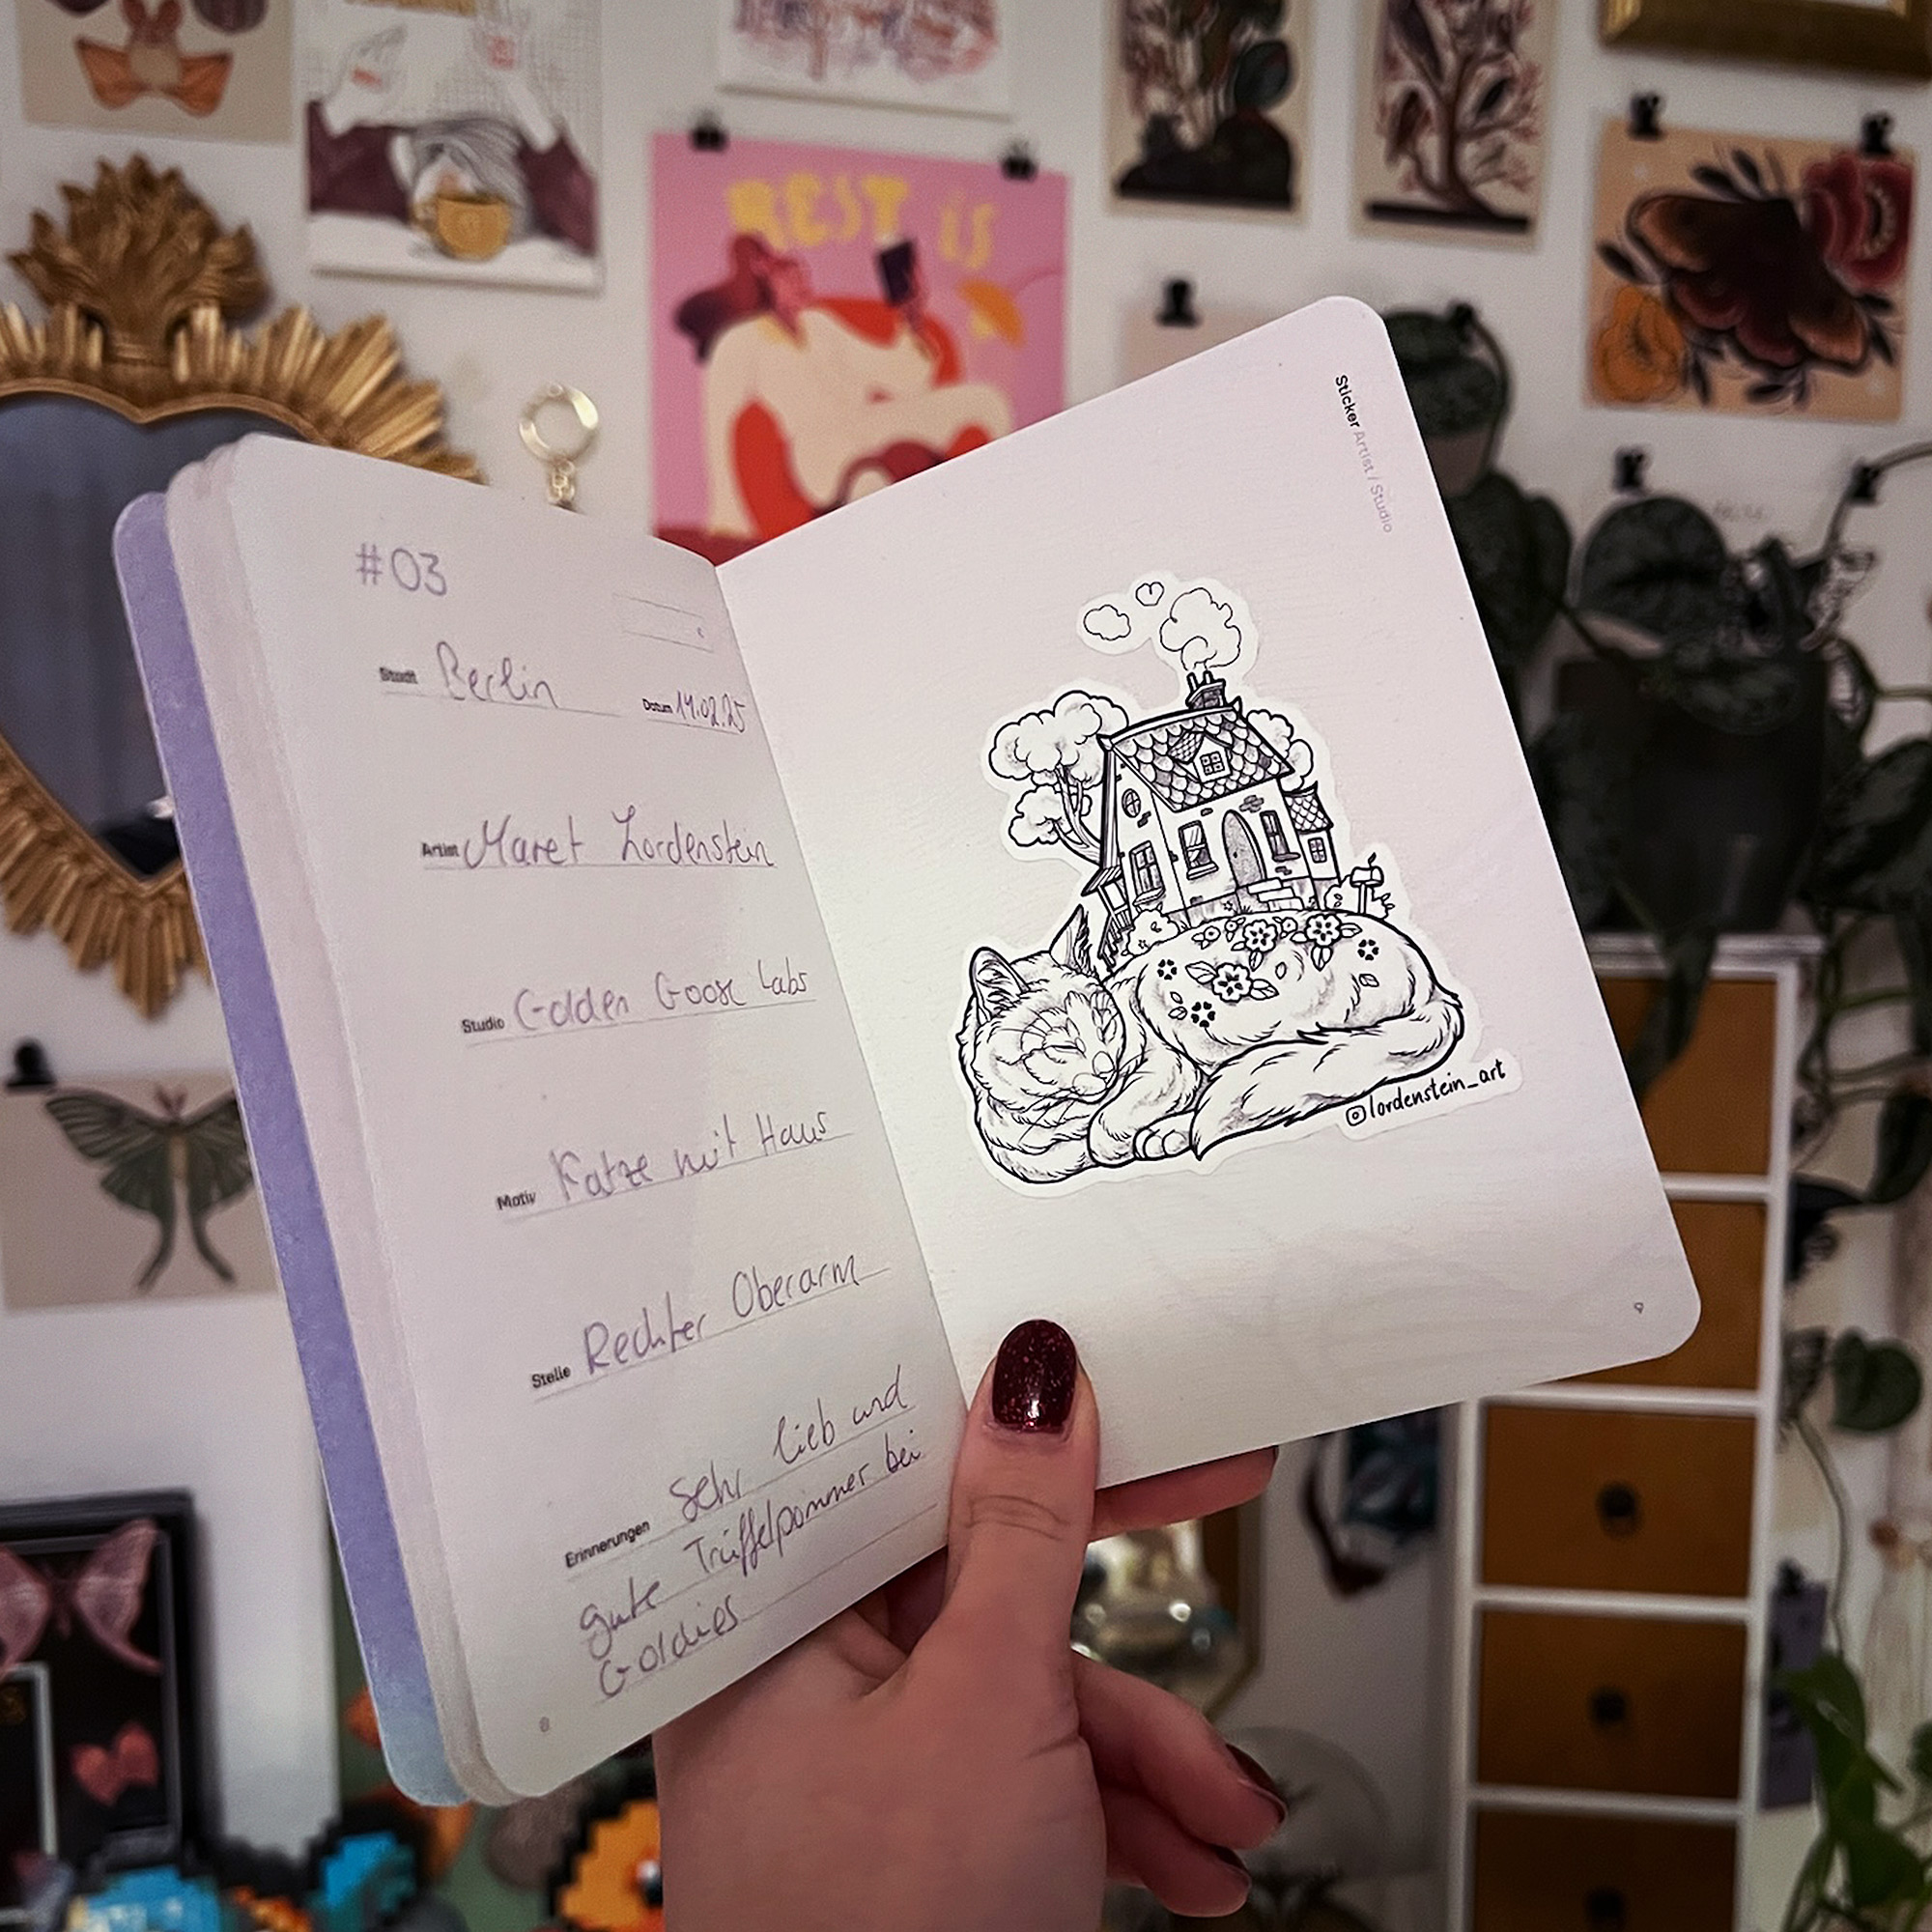 REST is
#03
Stadt Berlin
Datum 14.02.25
Artist Maret Lordenstein
Studio Golden Goose Labs
Motiv Katze mit Haus
Stelle Rechter Oberarm
Erinnerungen Sehr lieb und
gute Trüffelpommer bei
Goldies
8
Sticker Artist / Studio
@lordenstein_art
9